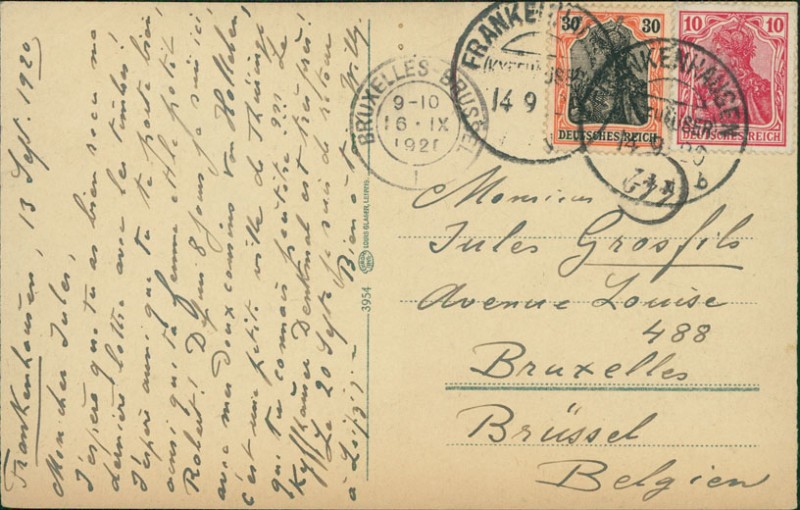 Frankenhausen, 13 Sept. 1920
Mon cher Jules,
J'espère que tu as bien reçu ma
dernière lettre avec les timbres!
J'espère aussi que tu te porte bien
ainsi que ta femme et le petit
Robert! Depuis 8 jours je suis ici
avec mes deux cousins von Holleben!
C'est une petite ville de Thüringe
que tu connais peut-être??! Le
Kyffhäuser Denkmal est très près!
Le 20 Sept. je suis de retour
à Leipzig! – Bien à toi Willy
3954
LOUIS GLASER, LEIPZIG
BRUXELLES BRUSSEL
9-10
16·IX
1921
1
FRANKENHAUSEN
14 9
30 30
DEUTSCHES REICH
FRANKENHAUSEN
14.9.20
b
10 10
DEUTSCHES REICH
Monsieur
Jules Grosfils
Avenue Louise
488
Bruxelles
Brüssel
Belgien